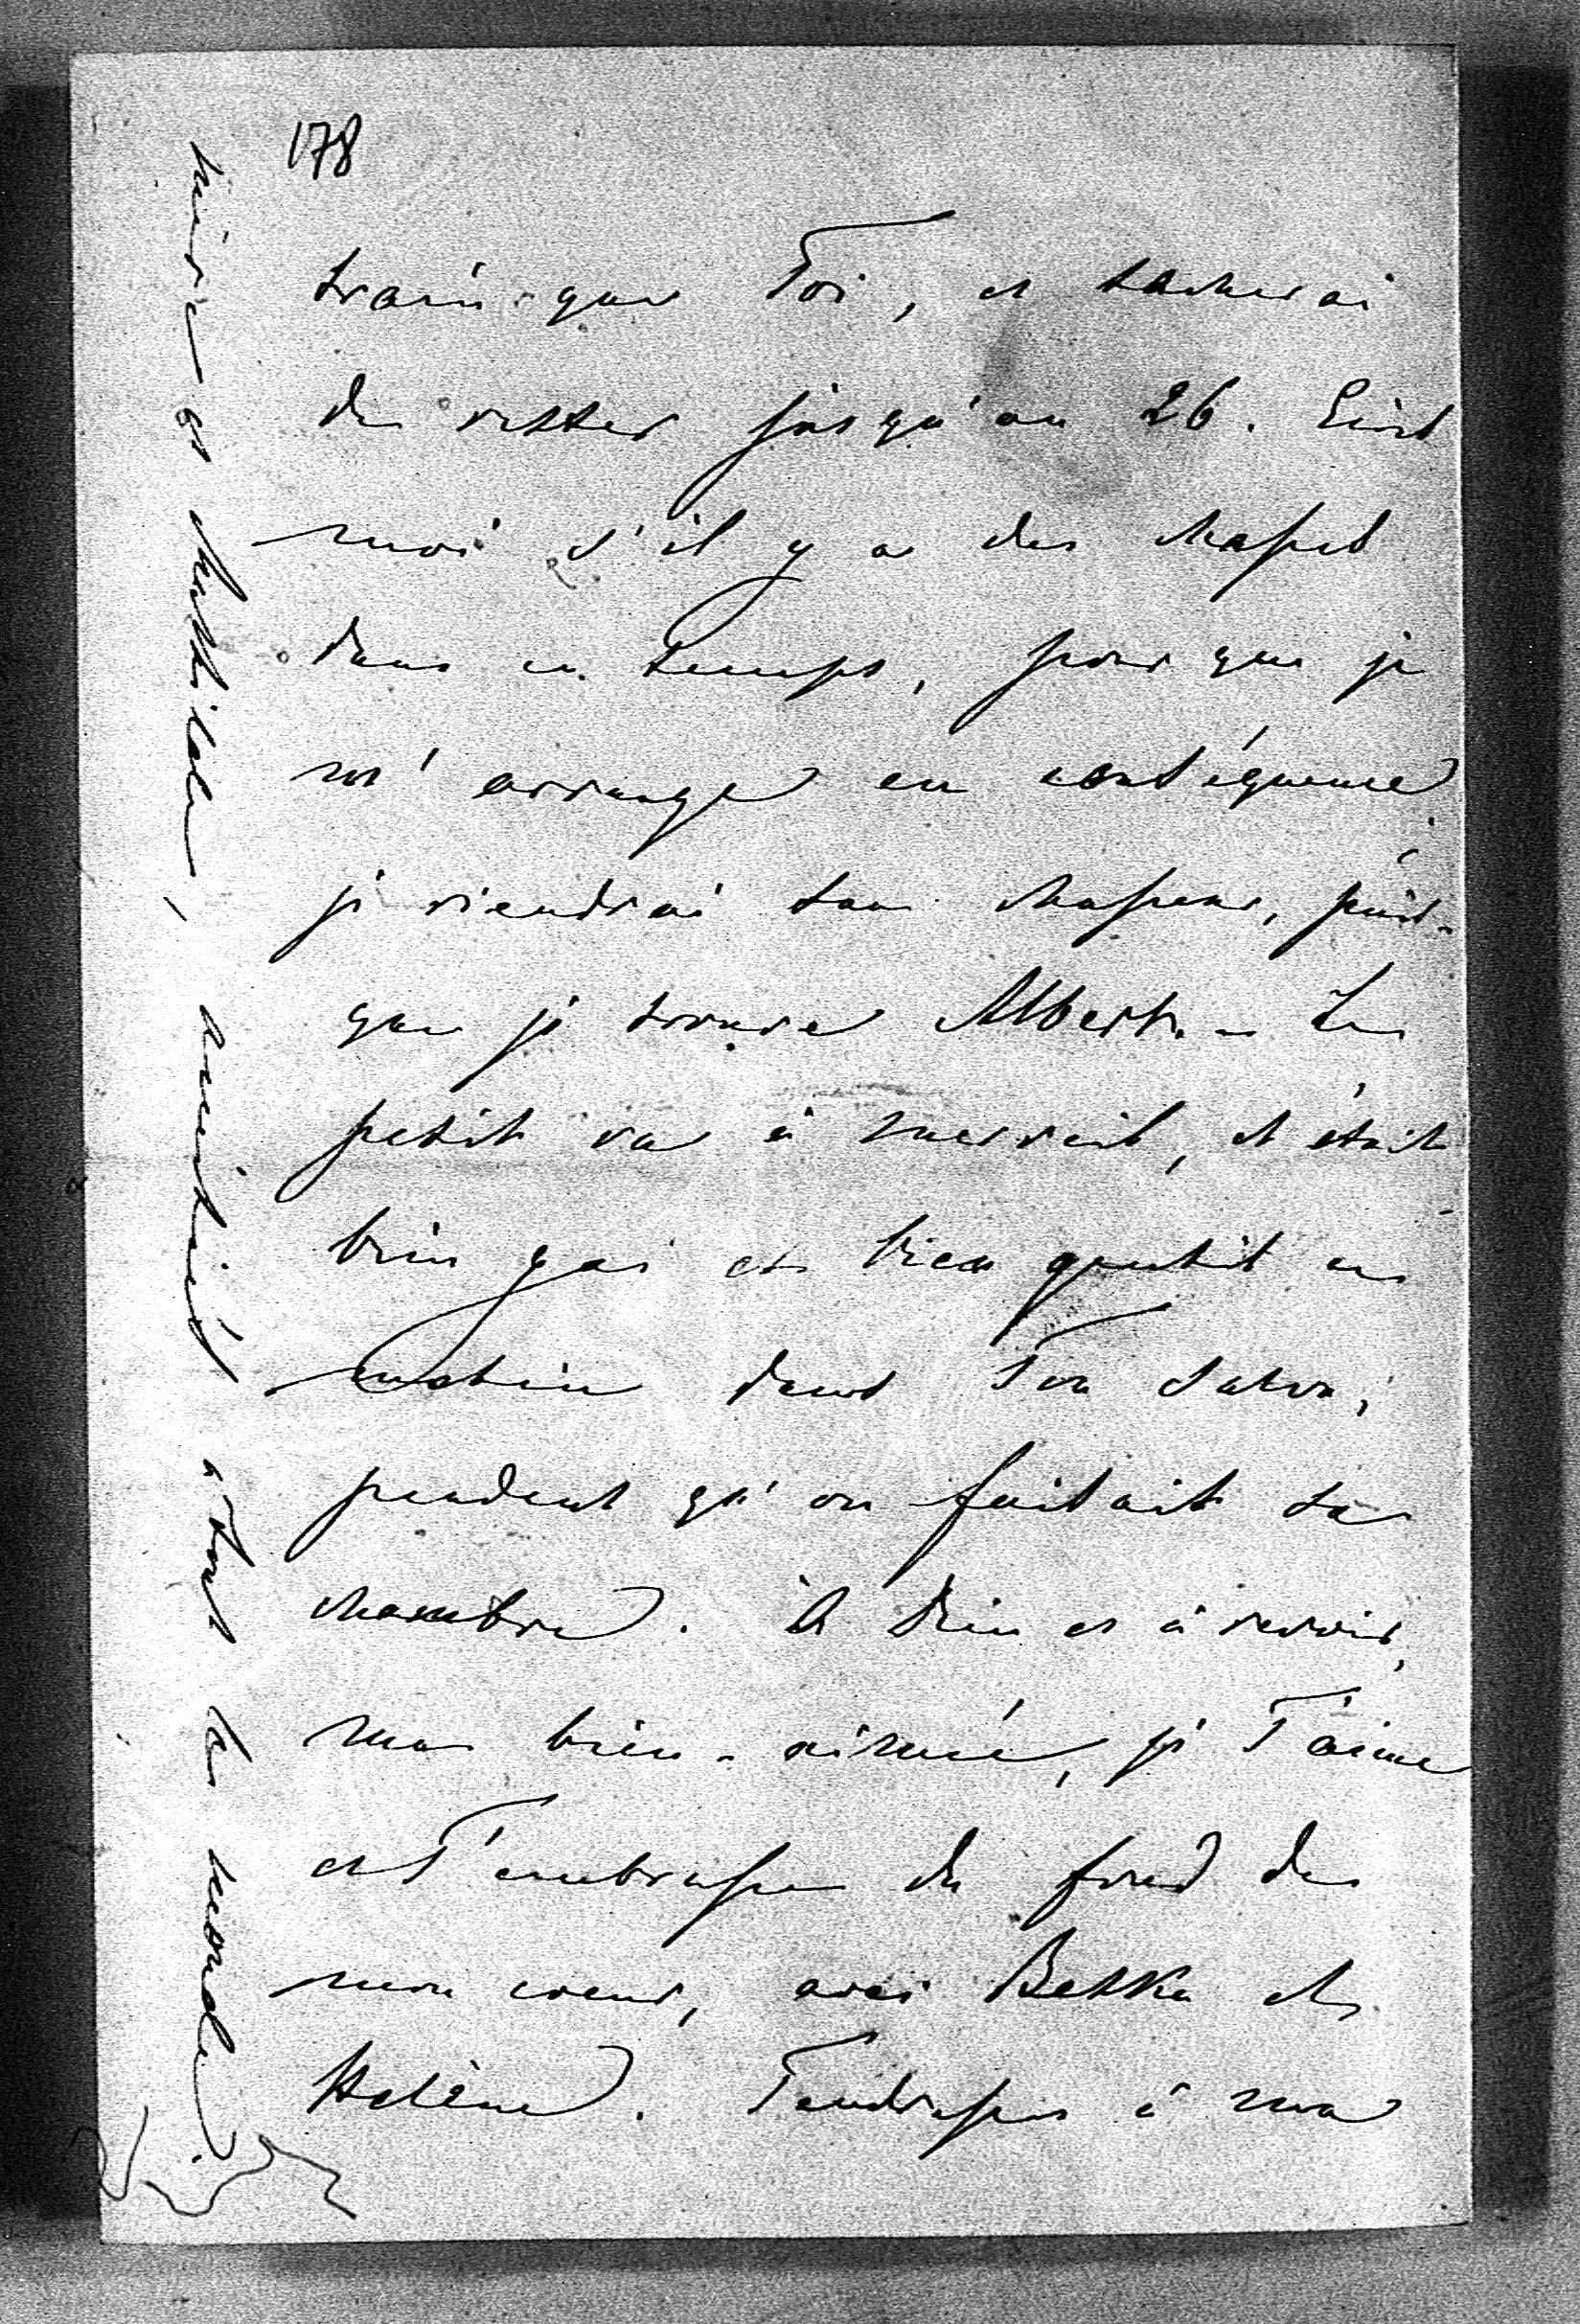 178
train que Toi, et tacherai
de rester jusqu'au 26. Ecris
moi s'il y a des chasses
dans ce temps, pour que je
m'arrange en conséquence,
je viendrai sans chasseur, puis-
que je trouve Albert. – Le
petit va à merveil, et était
bien gai et bien gentil ce
matin dans Ton salon,
pendant qu'on faisait sa
chambre. A Dieu et à revoir,
ma bien-aimée, je T'aime
et T'embrasse du fond de
mon coeur, avec Bekka et
Helène. Tendresses à ma
mère et Mathilde, amitiés à tout le monde.